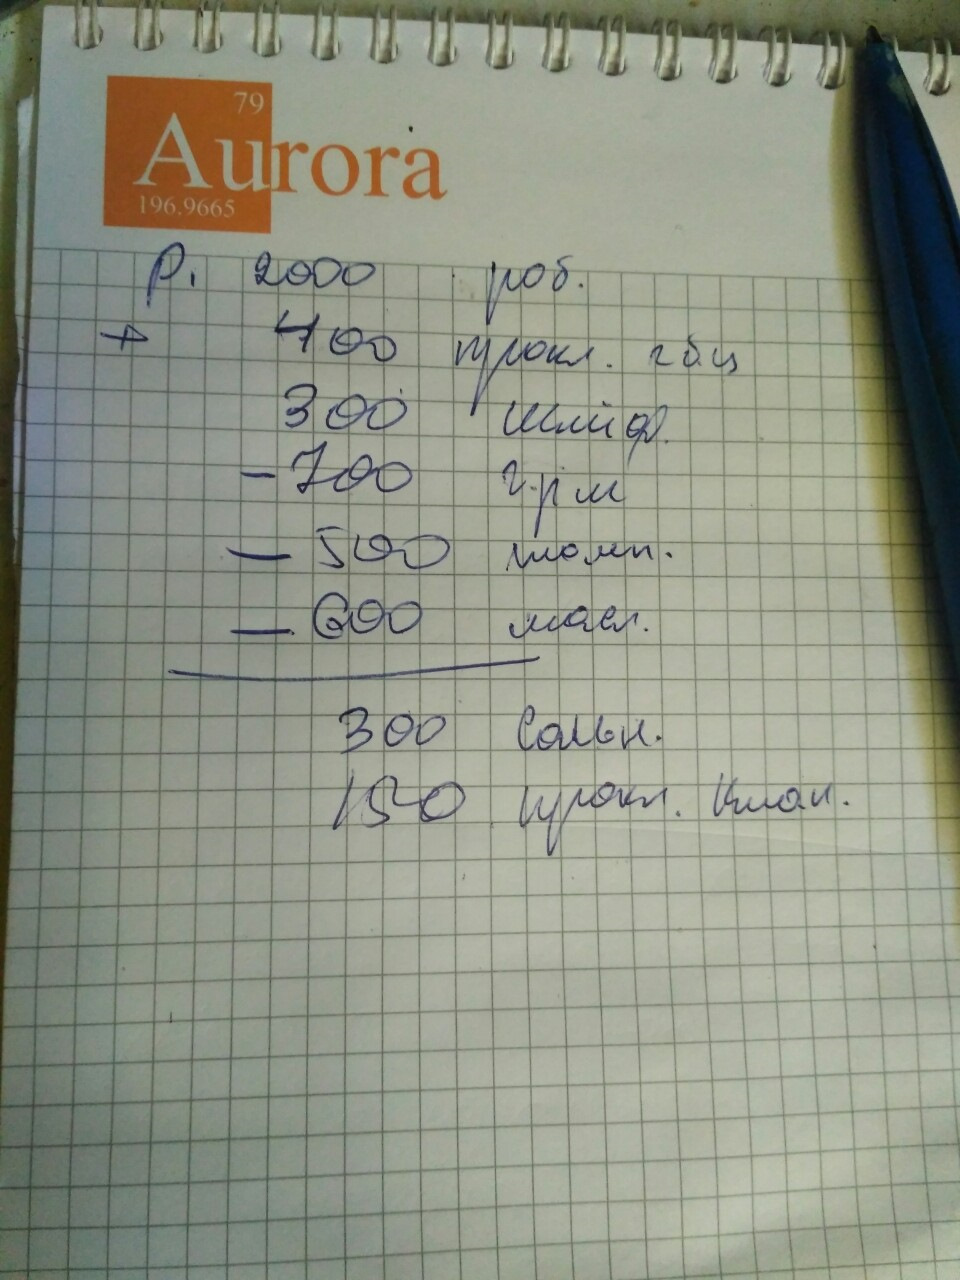 79
Aurora
196.9665
Р. 2000 роб.
+ 400 прокл. гбц
300 шлиф.
- 700 г.р.м
- 500 помп.
- 600 масл.
300 Сальн.
150 прокл. клап.